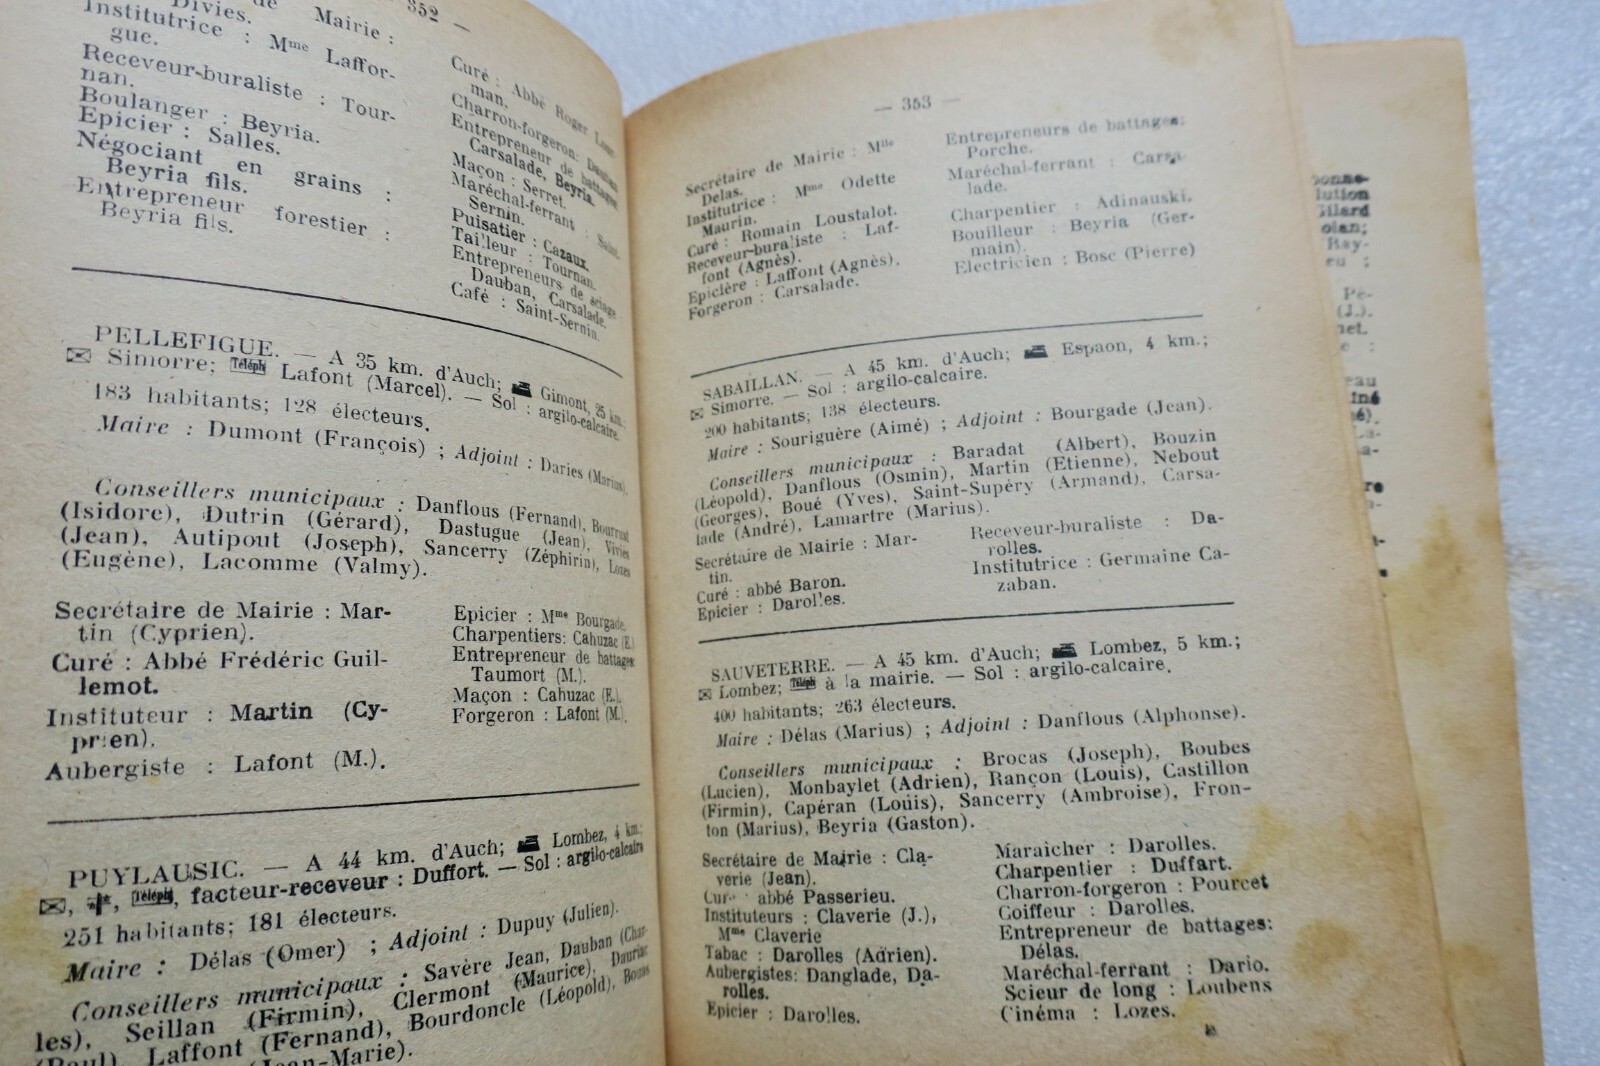 — 352 —
Divies. de Mairie :
Institutrice : Mme Laffor-
gue.
Receveur-buraliste : Tour-
nan.
Boulanger : Beyria.
Epicier : Salles.
Négociant en grains :
Beyria fils.
Entrepreneur forestier :
Beyria fils.
Curé : Abbé Roger
man.
Charron-forgeron: Dauban
Entrepreneur de battages
Carsalade, Beyria.
Maçon : Serret.
Maréchal-ferrant : Saint-
Sernin.
Puisatier : Cazaux.
Tailleur : Tournan.
Entrepreneurs de sciage
Dauban, Carsalade.
Café : Saint-Sernin.
PELLEFIGUE. — A 35 km. d'Auch; Gimont, 25 km.;
Simorre; Téléph Lafont (Marcel). — Sol : argilo-calcaire.
183 habitants; 128 électeurs.
Maire : Dumont (François) ; Adjoint : Daries (Marius).
Conseillers municipaux : Danflous (Fernand), Bourrust
(Isidore), Dutrin (Gérard), Dastugue (Jean), Vivies
(Jean), Autipout (Joseph), Sancerry (Zéphirin), Lozes
(Eugène), Lacomme (Valmy).
Secrétaire de Mairie : Mar-
tin (Cyprien).
Curé : Abbé Frédéric Guil-
lemot.
Instituteur : Martin (Cy-
prien).
Aubergiste : Lafont (M.).
Epicier : Mme Bourgade.
Charpentiers: Cahuzac (E.)
Entrepreneur de battages
Taumort (M.).
Maçon : Cahuzac (E.).
Forgeron : Lafont (M.).
PUYLAUSIC. — A 44 km. d'Auch; Lombez, 4 km.;
Téléph, facteur-receveur : Duffort. — Sol : argilo-calcaire
251 habitants; 181 électeurs.
Maire : Délas (Omer) ; Adjoint : Dupuy (Julien).
Conseillers municipaux : Savère Jean, Dauban (Char-
les), Seillan (Firmin), Clermont (Maurice), Dauriac
(Paul), Laffont (Fernand), Bourdoncle (Léopold), Bouas
(Jean-Marie).
— 353 —
Secrétaire de Mairie : Mlle
Delas.
Institutrice : Mme Odette
Maurin.
Curé : Romain Loustalot.
Receveur-buraliste : Laf-
font (Agnès).
Epicière : Laffont (Agnès).
Forgeron : Carsalade.
Entrepreneurs de battages:
Porche.
Maréchal-ferrant : Carsa-
lade.
Charpentier : Adinauski.
Bouilleur : Beyria (Ger-
main).
Electricien : Bosc (Pierre)
SABAILLAN. — A 45 km. d'Auch; Espaon, 4 km.;
Simorre. — Sol : argilo-calcaire.
200 habitants; 138 électeurs.
Maire : Souriguère (Aimé) ; Adjoint : Bourgade (Jean).
Conseillers municipaux : Baradat (Albert), Bouzin
(Léopold), Danflous (Osmin), Martin (Etienne), Nebout
(Georges), Boué (Yves), Saint-Supéry (Armand), Carsa-
lade (André), Lamartre (Marius).
Secrétaire de Mairie : Mar-
tin.
Curé : abbé Baron.
Epicier : Darolles.
Receveur-buraliste : Da-
rolles.
Institutrice : Germaine Ca-
zaban.
SAUVETERRE. — A 45 km. d'Auch; Lombez, 5 km.;
Lombez; Téléph à la mairie. — Sol : argilo-calcaire.
400 habitants; 263 électeurs.
Maire : Délas (Marius) ; Adjoint : Danflous (Alphonse).
Conseillers municipaux : Brocas (Joseph), Boubes
(Lucien), Monbaylet (Adrien), Rançon (Louis), Castillon
(Firmin), Capéran (Louis), Sancerry (Ambroise), Fron-
ton (Marius), Beyria (Gaston).
Secrétaire de Mairie : Cla-
verie (Jean).
Cur abbé Passerieu.
Instituteurs : Claverie (J.),
Mme Claverie
Tabac : Darolles (Adrien).
Aubergistes: Danglade, Da-
rolles.
Epicier : Darolles.
Maraicher : Darolles.
Charpentier : Duffart.
Charron-forgeron : Pourcet
Coiffeur : Darolles.
Entrepreneur de battages:
Délas.
Maréchal-ferrant : Dario.
Scieur de long : Loubens
Cinéma : Lozes.
lution